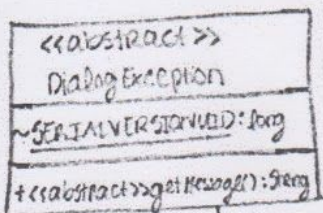 <<abstract>>
DialogException
~SERIALVERSIONUID: long
+<<abstract>>getMessage(): String